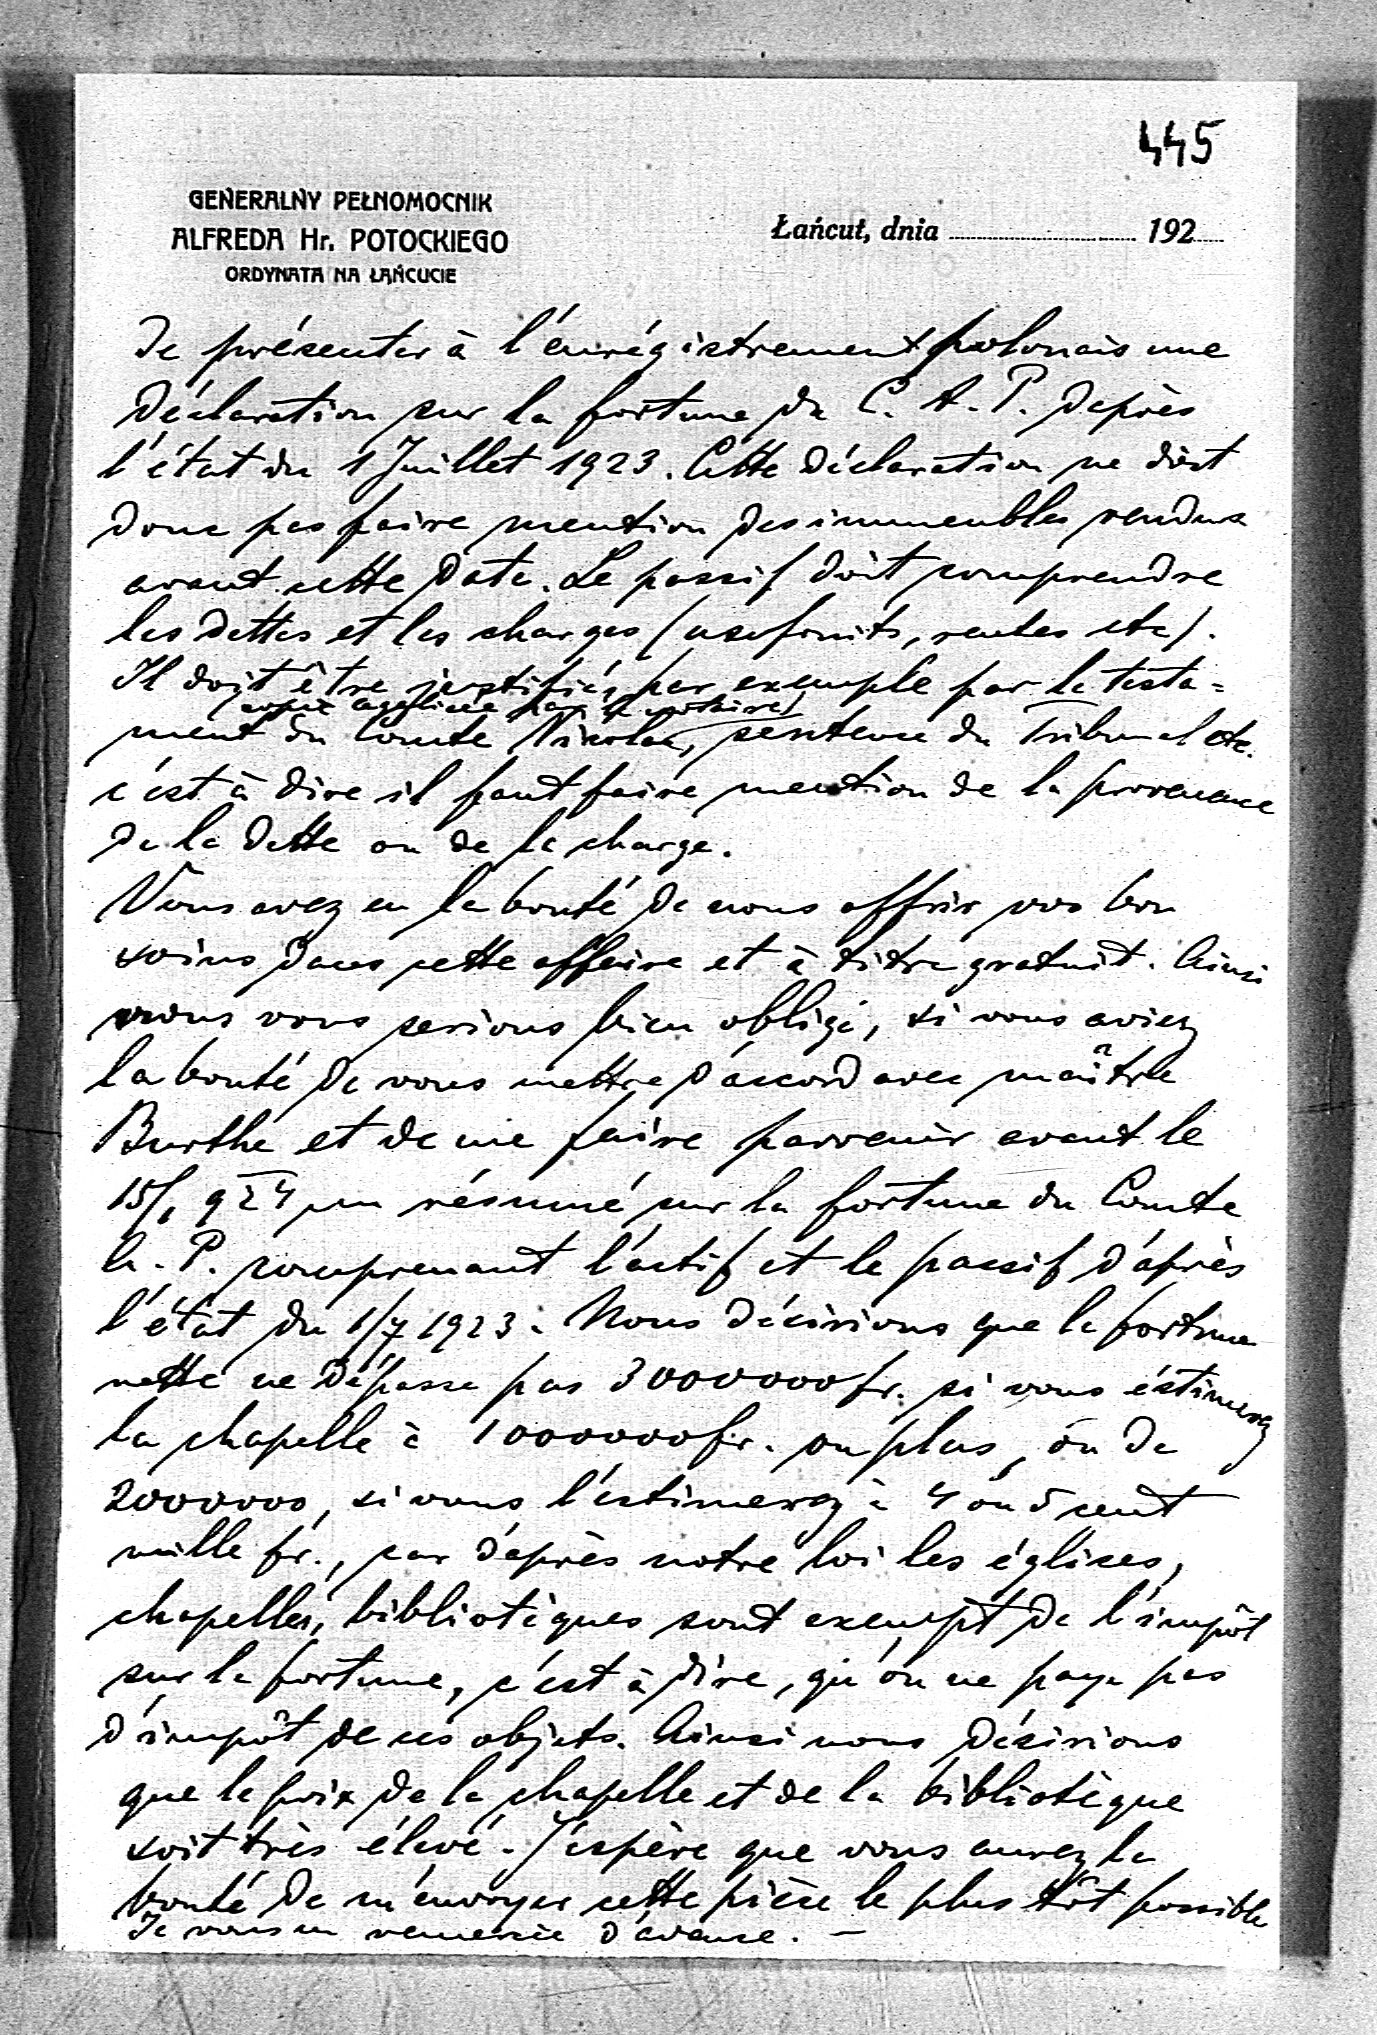 445
GENERALNY PEŁNOMOCNIK
ALFREDA Hr. POTOCKIEGO
ORDYNATA NA ŁAŃCUCIE
Łańcut, dnia 192
de présenter à l'énrégistrement polonais une
déclaration sur la fortune du C. A. P. d'après
l'état du 1 Juillet 1923. Cette déclaration ne doit
donc pas faire mention des immeubles vendus
avant cette date. Le passif doit comprendre
les dettes et les charges (usufruits, rentes etc).
Il doit être justifié, par exemple par le testa=
(copie par le notaire)
ment du Comte Nicolas, sentence du Tribunal etc.
c'est à dire il faut faire mention de la provenance
de la dette ou de la charge.
Vous avez eu la bonté de nous offrir vos bon
soins dans cette affaire et à titre gratuit. Ainsi
nous vous serions bien obligé, si vous aviez
la bonté de vous mettre d'accord avec maître
Burthe et de me faire parvenir avant le
15/1 924 un résumé sur la fortune du Comte
A. P. comprenant l'actif et le passif d'après
l'état du 1/7 1923. Nous désirions que la fortune
nette ne dépasse pas 3000000 fr. si vous éstimerez
la chapelle à 1000000 fr. ou plus, ou de
2000000, si vous l'estimerez à 4 ou 5 cent
mille fr., car d'après notre loi les églises,
chapelles, bibliotèques sont exempt de l'impôt
sur la fortune, c'est à dire, qu'on ne paye pas
d'impôt de ces objets. Ainsi nous désirions
que le prix de la chapelle et de la bibliotèque
soit très élevé. J'espère que vous aurez la
bonté de m'envoyer cette pièce le plus tôt possible
Je vous en remercie d'avance. —